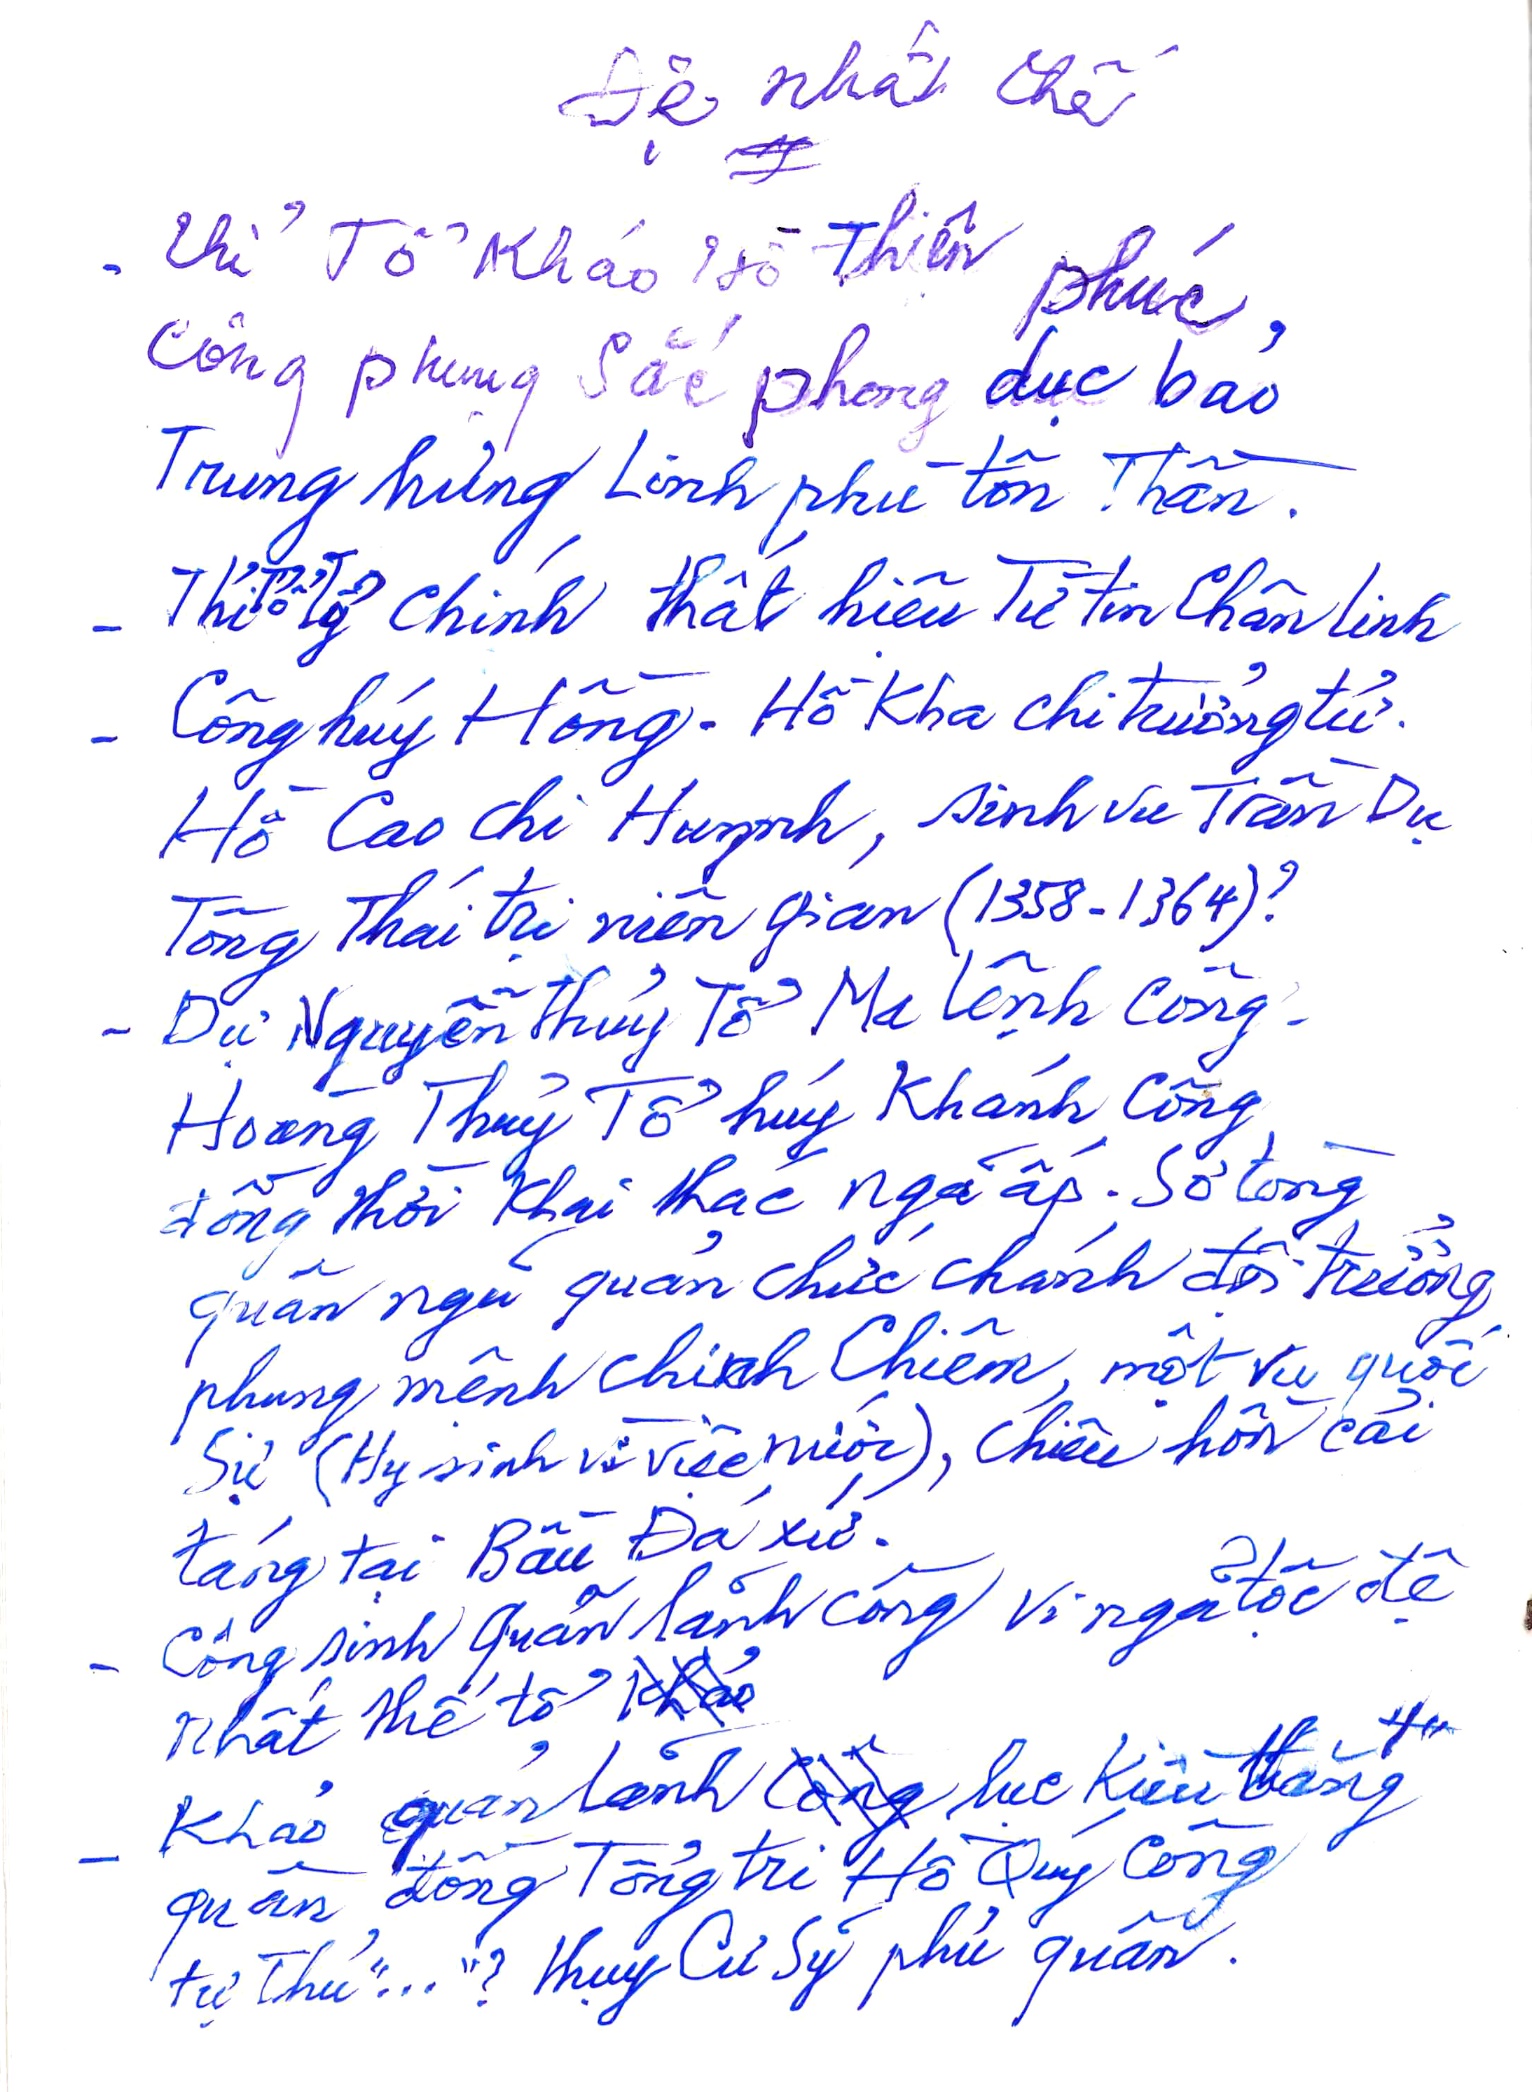 Đệ nhất thế
- Thỉ Tổ Khảo Hồ Thiện phúc,
Công phụng Sắc phong dực bảo
Trung hưng Linh phù tôn Thần.
- Thỉ Tổ Tỷ chính thất hiệu Từ tín Chân linh
- Công húy Hồng - Hồ Kha chi trưởng tử.
Hồ Cao chi Huynh, sinh vu Trần Dụ
Tông Thái trị niên gian (1358-1364)?
- Dự Nguyễn thủy Tổ Ma Lệnh Công -
Hoàng Thủy Tổ húy Khánh Công
đồng thời khai thác ngã ấp. Sơ tòng
quân ngũ quản chức chánh đội trưởng
phụng mệnh chinh Chiêm, một vu quốc
Sự (Hy sinh vì việc nước), chiêu hồn cải
táng tại Bàu Đá xứ.
- Công sinh Quản lãnh công vi ngã tộc đệ
nhất thế tổ
- Khảo quản lãnh lục Kiêu thắng "4"
quân đồng Tổng tri Hồ Quý Công
tự Thư "..."? thụy Cư Sỹ phủ quân.